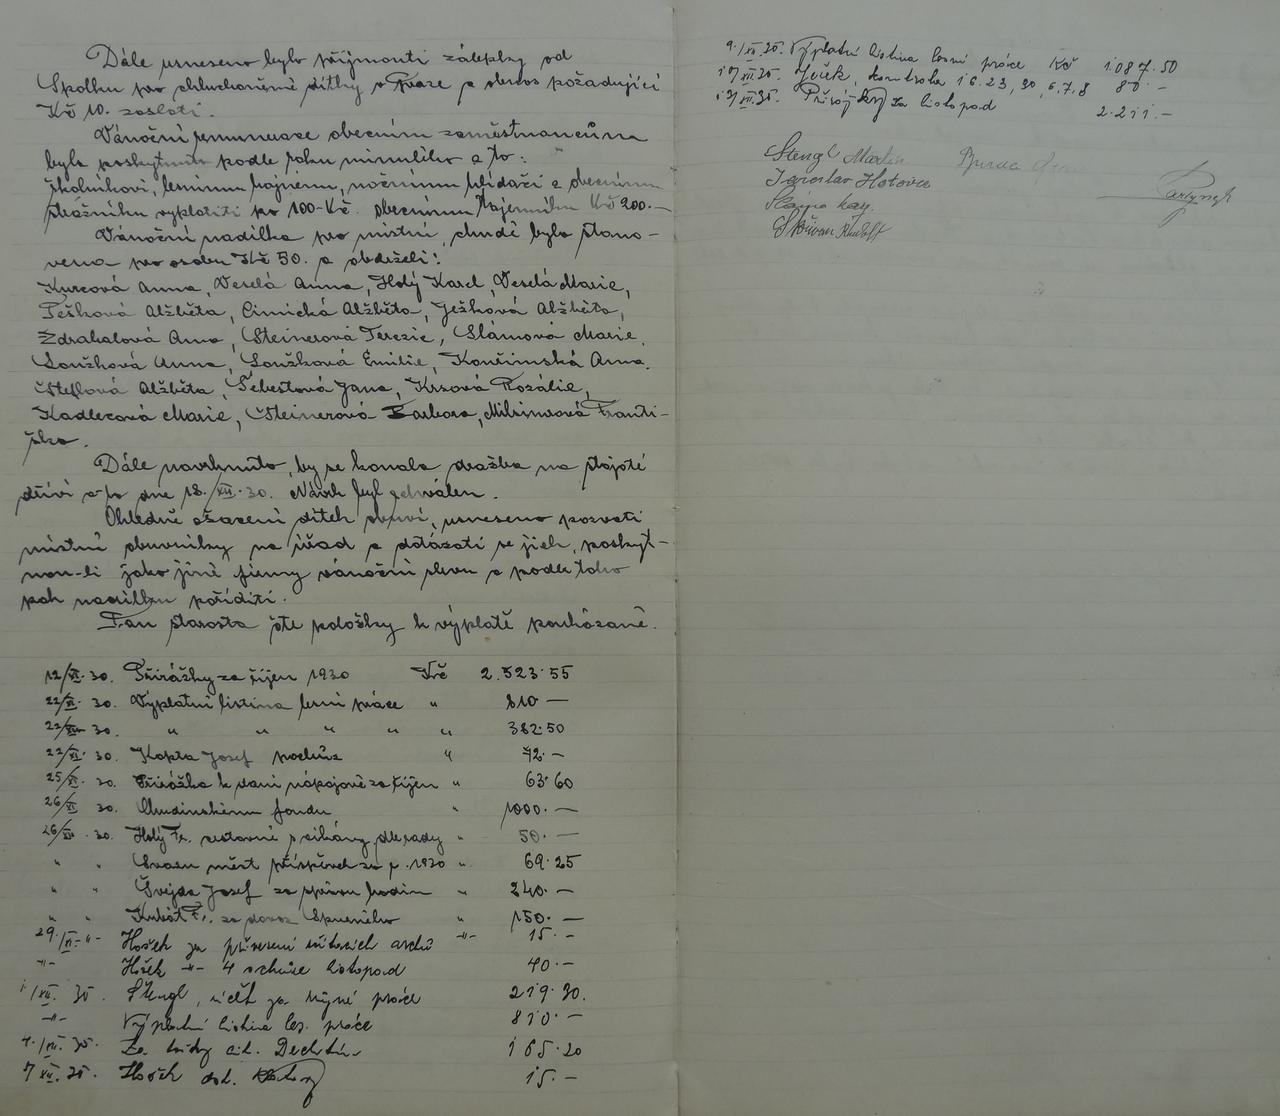 Dále usneseno bylo přijmouti zálepky od
Spolku pro ohluchoněmé dítky v Praze a obnos požadující
Kč 10. zaslati.
Vánoční remunerace obecním zaměstnancům
byla poskytnuta podle roku minulého a to:
školníkovi, lesnímu hajnému, nočnímu hlídači a obecnímu
strážníku vyplatiti po 100-Kč. obecnímu tajemníku Kč 200.—
Vánoční nadílka pro místní chudé byla stano-
vena pro osobu Kč 50. a obdrželi:
Kurcová Anna, Veselá Anna, Holý Karel, Veselá Marie,
Pešková Alžběta, Cimická Alžběta, Ježková Alžběta,
Zdrahalová Anna, Steinerová Terezie, Slámová Marie,
Loužková Anna, Loužková Emilie, Končinská Anna,
Šteflová Alžběta, Šebestová Jana, Krsová Rozálie,
Kadlecová Marie, Šteinerová Barbora, Milsinerová Franti-
ška.
Dále navrhnuto, by se konala dražba na stojaté
dříví a to dne 18./XII.30. Návrh byl schválen.
Ohledně ošacení dítek obuví, usneseno pozvati
místní obuvníky na úřad a dotázati se jich, poskyt-
nou-li jako jiné firmy vánoční slevu a podle toho
pak nadílku poříditi.
Pan starosta čte položky k výplatě poukázané.
12/XI. 30. Přirážky za říjen 1930 Kč 2.523.55
22/XI. 30. Výplatní listina lesní práce " 810 —
22/XI. 30. " " " " " 382.50
22/XI. 30. Kopta Josef pochůz " 42.—
25/XI. 30. Přirážka k dani nápojové za říjen " 63.60
26/XI 30. Chudinskému fondu " 1000.—
26/XI. 30. Holý Fr. cestovné s cikány dle sady " 50.—
" " Svazu měst příspěvek za r. 1930 " 69.25
" " Švejda Josef za správu hodin " 240.—
" " Kubát Fr. za dovoz " 150.—
29./XI. -"- Hošek za přinesení sčítacích archů -"- 15.—
-"- Hošek -"- 4 schůze listopad 40.—
1/XII. 30. Štengl, účet za různé práce 219.30.
-"- Výplatní listina les. práce 810.—
4./XII. 30. Za 165.20
7 XII. 30. Hošek 15.—
9./XII. 30. Výplatní listina lesní práce Kč 1.087.50
17 XII. 30. Hošek, kontrola 16.23, 30, 6.7.8 80.—
17/XII. 30. za listopad 2.211.—
Štengl Martin
Jaroslav Hotovec
Skřivan Rudolf